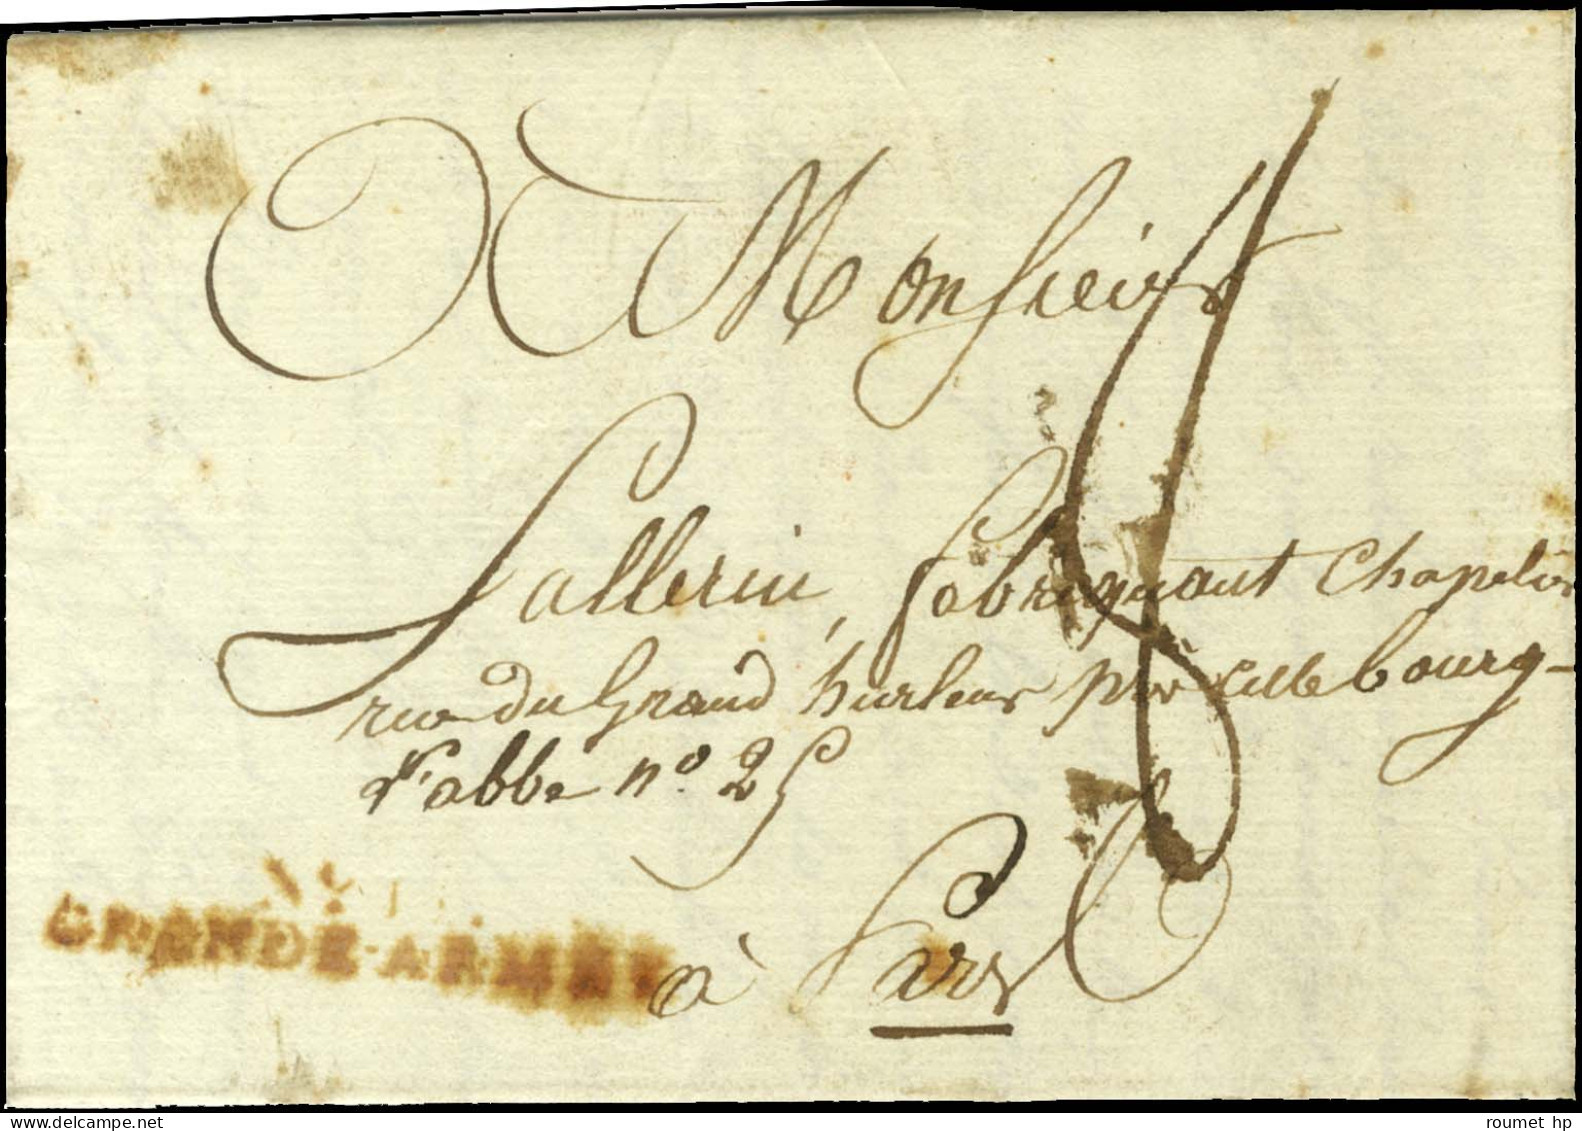 A Monsieur
Sallerin, fabriquant Chapelier
rue du Grand hurleur près celle bourg-
l'abbé n° 25
GRANDE-ARMÉE
à Paris
8
www.delcampe.net
roumet hp